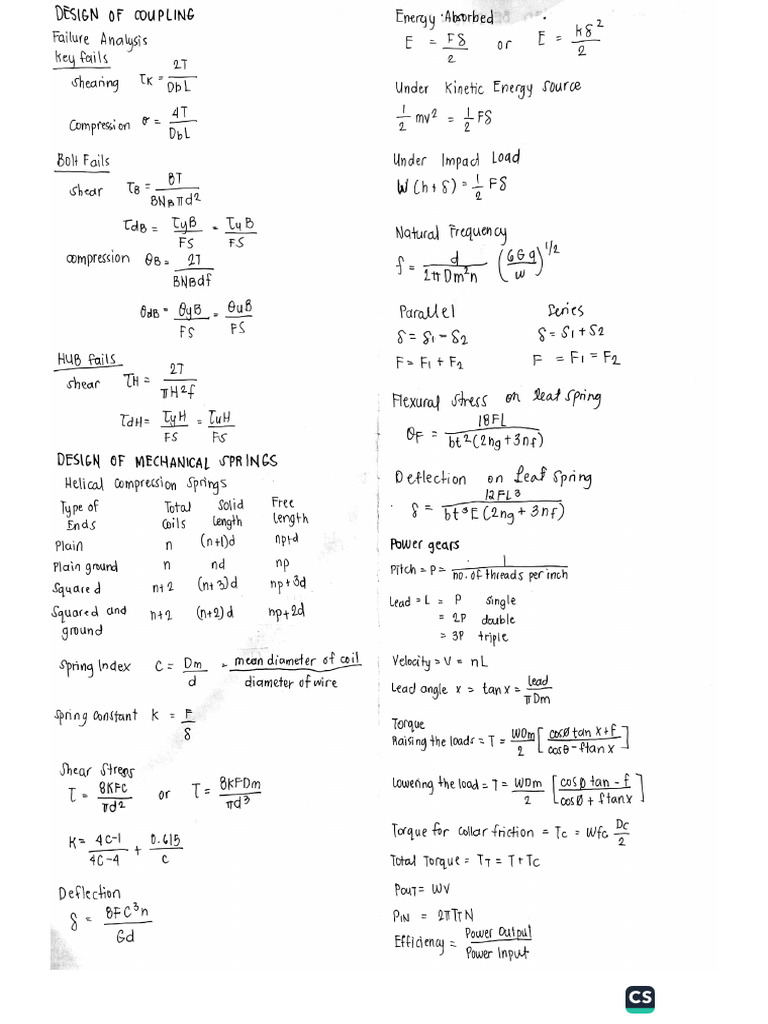 DESIGN OF COUPLING
Failure Analysis
Key fails
shearing τK = 2T / DbL
Compression σ = 4T / DbL
Bolt Fails
shear τB = 8T / BNBπd²
τdB = τyB / FS = τuB / FS
compression θB = 2T / BNBdf
θdB = θyB / FS = θuB / FS
HUB fails
shear τH = 2T / πH²f
τdH = τyH / FS = τuH / FS
DESIGN OF MECHANICAL SPRINGS
Helical Compression Springs
Type of Ends Total Coils Solid Length Free Length
Plain n (n+1)d np+d
Plain ground n nd np
Squared n+2 (n+3)d np+3d
Squared and ground n+2 (n+2)d np+2d
Spring Index C = Dm / d = mean diameter of coil / diameter of wire
Spring Constant K = F / δ
Shear Stress
τ = 8KFC / πd² or τ = 8KFDm / πd³
K = 4C-1 / 4C-4 + 0.615 / C
Deflection
δ = 8FC³n / Gd
Energy Absorbed
E = Fδ / 2 or E = kδ² / 2
Under Kinetic Energy Source
1/2 mv² = 1/2 Fδ
Under Impact Load
W(h+δ) = 1/2 Fδ
Natural Frequency
f = d / 2πDm²n (6Gg / w)^1/2
Parallel Series
δ = δ1 - δ2 δ = δ1 + δ2
F = F1 + F2 F = F1 = F2
Flexural stress on leaf spring
θF = 18FL / bt²(2ng+3nf)
Deflection on Leaf Spring
δ = 12FL3 / bt³E(2ng+3nf)
Power gears
Pitch = P = 1 / no. of threads per inch
Lead = L = P single
= 2P double
= 3P triple
Velocity = V = nL
Lead angle x = tan x = lead / πDm
Torque
Raising the loads = T = WDm / 2 [cosθ tan x + f / cosθ - f tan x]
Lowering the load = T = WDm / 2 [cosø tan - f / cosø + f tan x]
Torque for collar friction = Tc = Wfc Dc / 2
Total Torque = TT = T + TC
POUT = WV
PIN = 2πTTN
Efficiency = Power Output / Power Input
CS